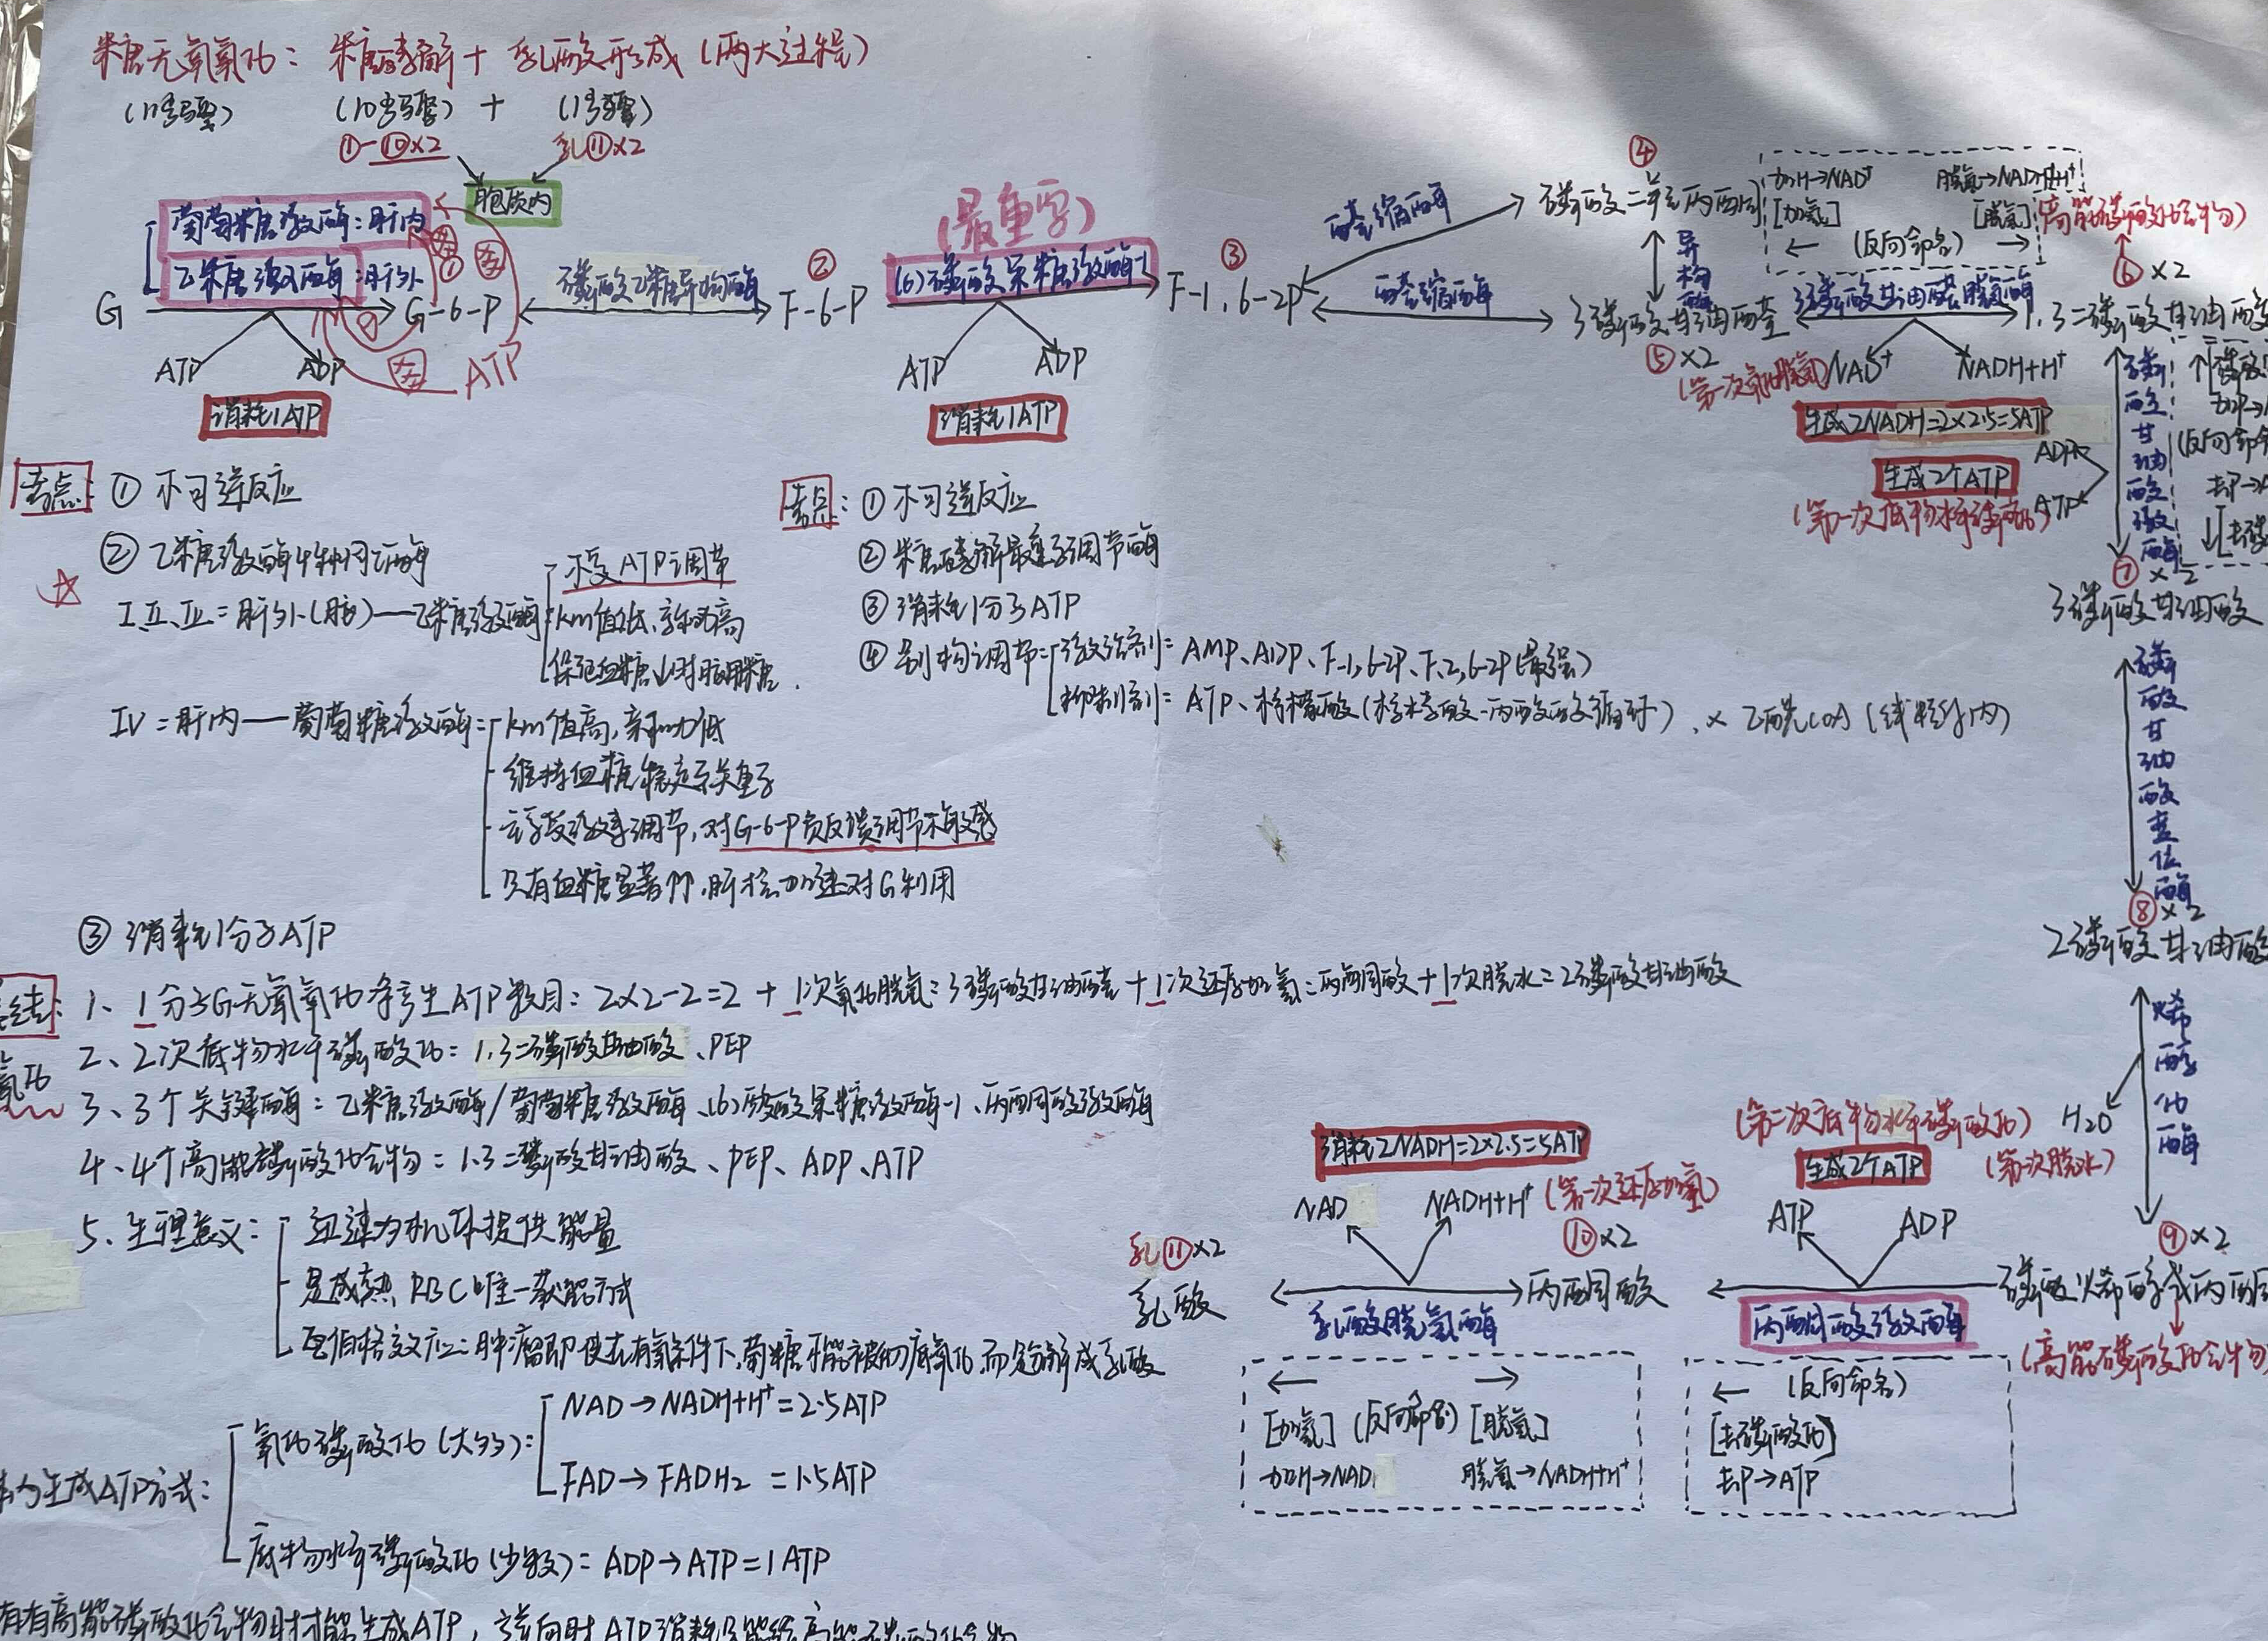 糖无氧氧化：糖酵解＋乳酸形成（两大过程）
（11步骤） （10步骤）＋（1步骤）
①-⑩×2 乳⑪×2
胞质内
葡萄糖激酶：肝内
己糖激酶：肝外
G
G-6-P
ATP ADP
ATP
消耗1ATP
磷酸己糖异构酶
②
F-6-P
（最重要）
(6)磷酸果糖激酶-1
ATP ADP
消耗1ATP
③
F-1,6-2P
醛缩酶
醛缩酶
④
磷酸二羟丙酮
异构酶
3磷酸甘油醛
⑤×2
（第一次氧化脱氢）
加H→NAD⁺ 脱氢→NADH+H⁺
[加氢] [脱氢]
← （反向命名） →
3磷酸甘油醛脱氢酶
NAD⁺ NADH+H⁺
生成2NADH=2×2.5=5ATP
（高能磷酸化合物）
⑥×2
1,3二磷酸甘油酸
磷酸甘油酸激酶
ADP
ATP
生成2个ATP
（第一次底物水平磷酸化）
（反向命
⑦×2
3磷酸甘油酸
磷酸甘油酸变位酶
⑧×2
2磷酸甘油酸
烯醇化酶
H2O
（第一次脱水）
⑨×2
磷酸烯醇式丙酮
（高能磷酸化合物
（第二次底物水平磷酸化）
生成2个ATP
ATP ADP
丙酮酸激酶
← （反向命名）
[去磷酸化]
去P→ATP
⑩×2
丙酮酸
消耗2NADH=2×2.5=5ATP
NAD NADH+H⁺
（第一次还原加氢）
乳⑪×2
乳酸
乳酸脱氢酶
← →
[加氢]（反向命名）[脱氢]
加H→NAD 脱氢→NADH+H⁺
考点：① 不可逆反应
② 己糖激酶4种同工酶
I、II、III=肝外（脑）—己糖激酶
不受ATP调节
km值低、亲和力高
保证血糖↓时脑用糖.
IV=肝内—葡萄糖激酶=
km值高，亲和力低
维持血糖稳定至关重要
对G-6-P负反馈调节不敏感
只有血糖显著↑时，肝才会加速对G利用
③ 消耗1分子ATP
考点：① 不可逆反应
② 糖酵解最重要调节酶
③ 消耗1分子ATP
④ 别构调节=
激活剂=AMP、ADP、F-1,6-2P、F-2,6-2P（最强）
抑制剂=ATP、柠檬酸（柠檬酸-丙酮酸循环）、× 乙酰COA（线粒体内）
总结：1、1分子G无氧氧化净产生ATP数目：2×2-2=2＋1次氧化脱氢=3磷酸甘油醛＋1次还原加氢=丙酮酸＋1次脱水=2磷酸甘油酸
2、2次底物水平磷酸化=1,3二磷酸甘油酸、PEP
3、3个关键酶=己糖激酶/葡萄糖激酶、(6)磷酸果糖激酶-1、丙酮酸激酶
4、4个高能磷酸化合物=1,3二磷酸甘油酸、PEP、ADP、ATP
5、生理意义：
迅速为机体提供能量
是成熟RBC唯一获能方式
瓦伯格效应：肿瘤即使在有氧条件下，葡糖不能被彻底氧化，而是分解成乳酸
生成ATP方式：
氧化磷酸化（大多）：
NAD→NADH+H⁺=2.5ATP
FAD→FADH2=1.5ATP
底物水平磷酸化（少数）=ADP→ATP=1ATP
有高能磷酸化合物时才能生成ATP，逆向时ATP消耗